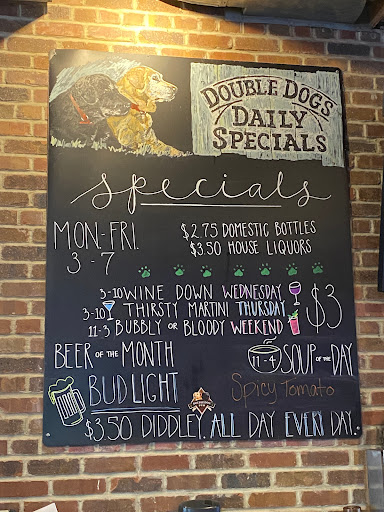 DOUBLE DOGS
DAILY
SPECIALS
specials
MON-FRI
3-7
$2.75 DOMESTIC BOTTLES
$3.50 HOUSE LIQUORS
3-10 WINE DOWN WEDNESDAY
3-10 THIRSTY MARTINI THURSDAY
11-3 BUBBLY OR BLOODY WEEKEND
$3
BEER OF THE MONTH
BUD LIGHT
11-4 SOUP OF THE DAY
Spicy Tomato
$3.50 DIDDLEY. ALL DAY EVERY DAY.